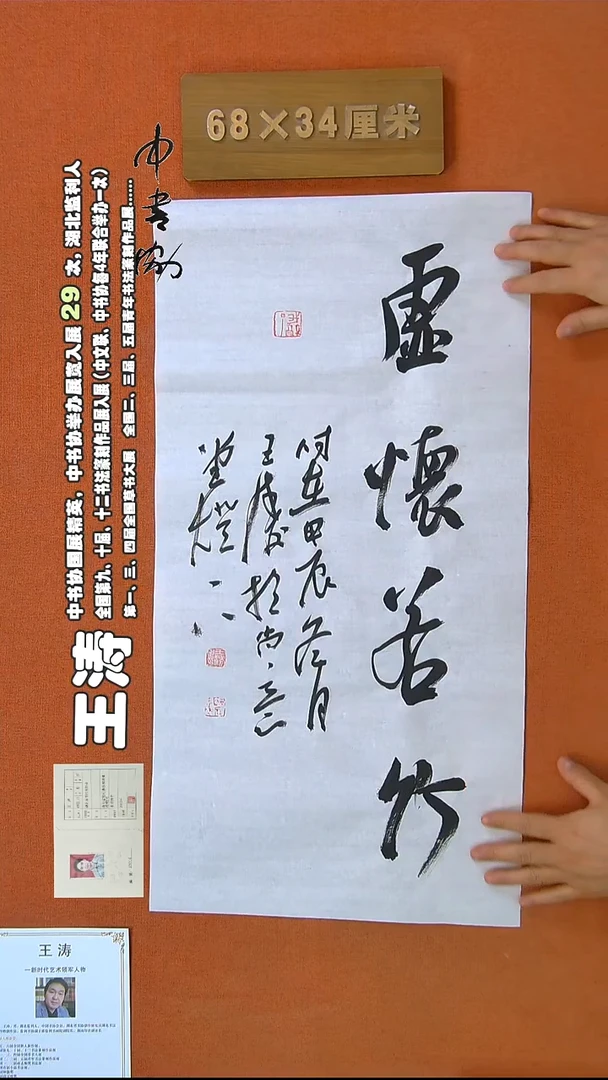 68×34厘米
中书协
虚懷若竹
时在甲辰冬月
王涛书于尚意
堂灯下
王涛
中书协国展精英，中书协举办展览入展 29 次，湖北监利人
全国第九、十届、十二书法篆刻作品展入展（中文联、中书协每4年联合举办一次）
第一、三、四届全国草书大展 全国二、三届、五届青年书法篆刻作品展......
王 涛
—新时代艺术领军人物